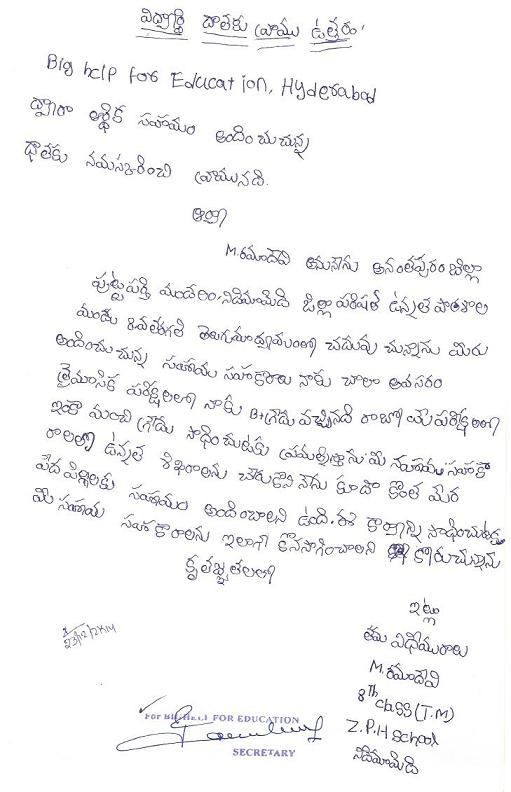 విద్యార్థి దాతకు వ్రాయు ఉత్తరం
Big help for Education, Hyderabad
ద్వారా ఆర్థిక సహాయం అందించుచున్న
దాతకు నమస్కరించి వ్రాయునది.
ఆర్యా
M.రమాదేవి అనునేను అనంతపురం జిల్లా
పుట్టపర్తి మండలం, నిడిమామిడి జిల్లా పరిషత్ ఉన్నత పాఠశాల
యందు 8వతరగతి తెలుగుమాధ్యమంలో చదువు చున్నాను మీరు
అందించుచున్న సహాయ సహకారాలు నాకు చాలా అవసరం
త్రైమాసిక పరీక్షలలో నాకు B+గ్రేడు వచ్చినది రాబోయే పరీక్షలలో
ఇంకా మంచి గ్రేడు సాధించుటకు ప్రయత్నిస్తాను మీ సహాయ సహకా
రాలతో ఉన్నత శిఖరాలను చేరుకొని నేను కూడా కొంత మేర
పేద పిల్లలకు సహాయం అందించాలని ఉంది. ఈ కార్యాన్ని సాధించుటకు
మీ సహాయ సహకారాలను ఇలాగే కొనసాగించాలని కోరుచున్నాను
కృతజ్ఞతలతో
ఇట్లు
తమ విధేయురాలు
M.రమాదేవి
8th class (T.M)
Z.P.H School
నిడిమామిడి
23/12/2K14
For BIG HELP FOR EDUCATION
SECRETARY